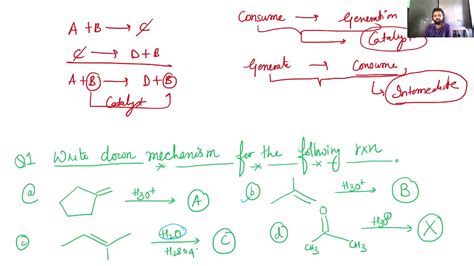 A + B → C
C → D + B
A + B → D + B
Catalyst
Consume → Generation
Catalyst
Generate → Consume
Intermediate
Q1 Write down mechanism for the following rxn.
a) H3O+ → A
b) H3O+ → B
c) H2O H2SO4 → C
d) O CH3 CH3 H3O⊕ → X